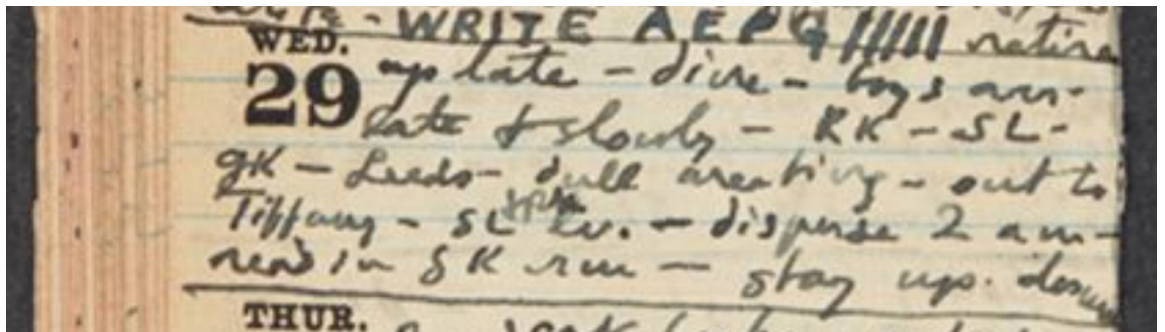 WRITE AEPG retire
WED.
29 up late - dine - boys arr-
late & slowly - RK - SL -
gK - Leeds - dull - out to
Tiffany - SL Lv. - disperse 2 am -
read in gK rm - stay up.
THUR.